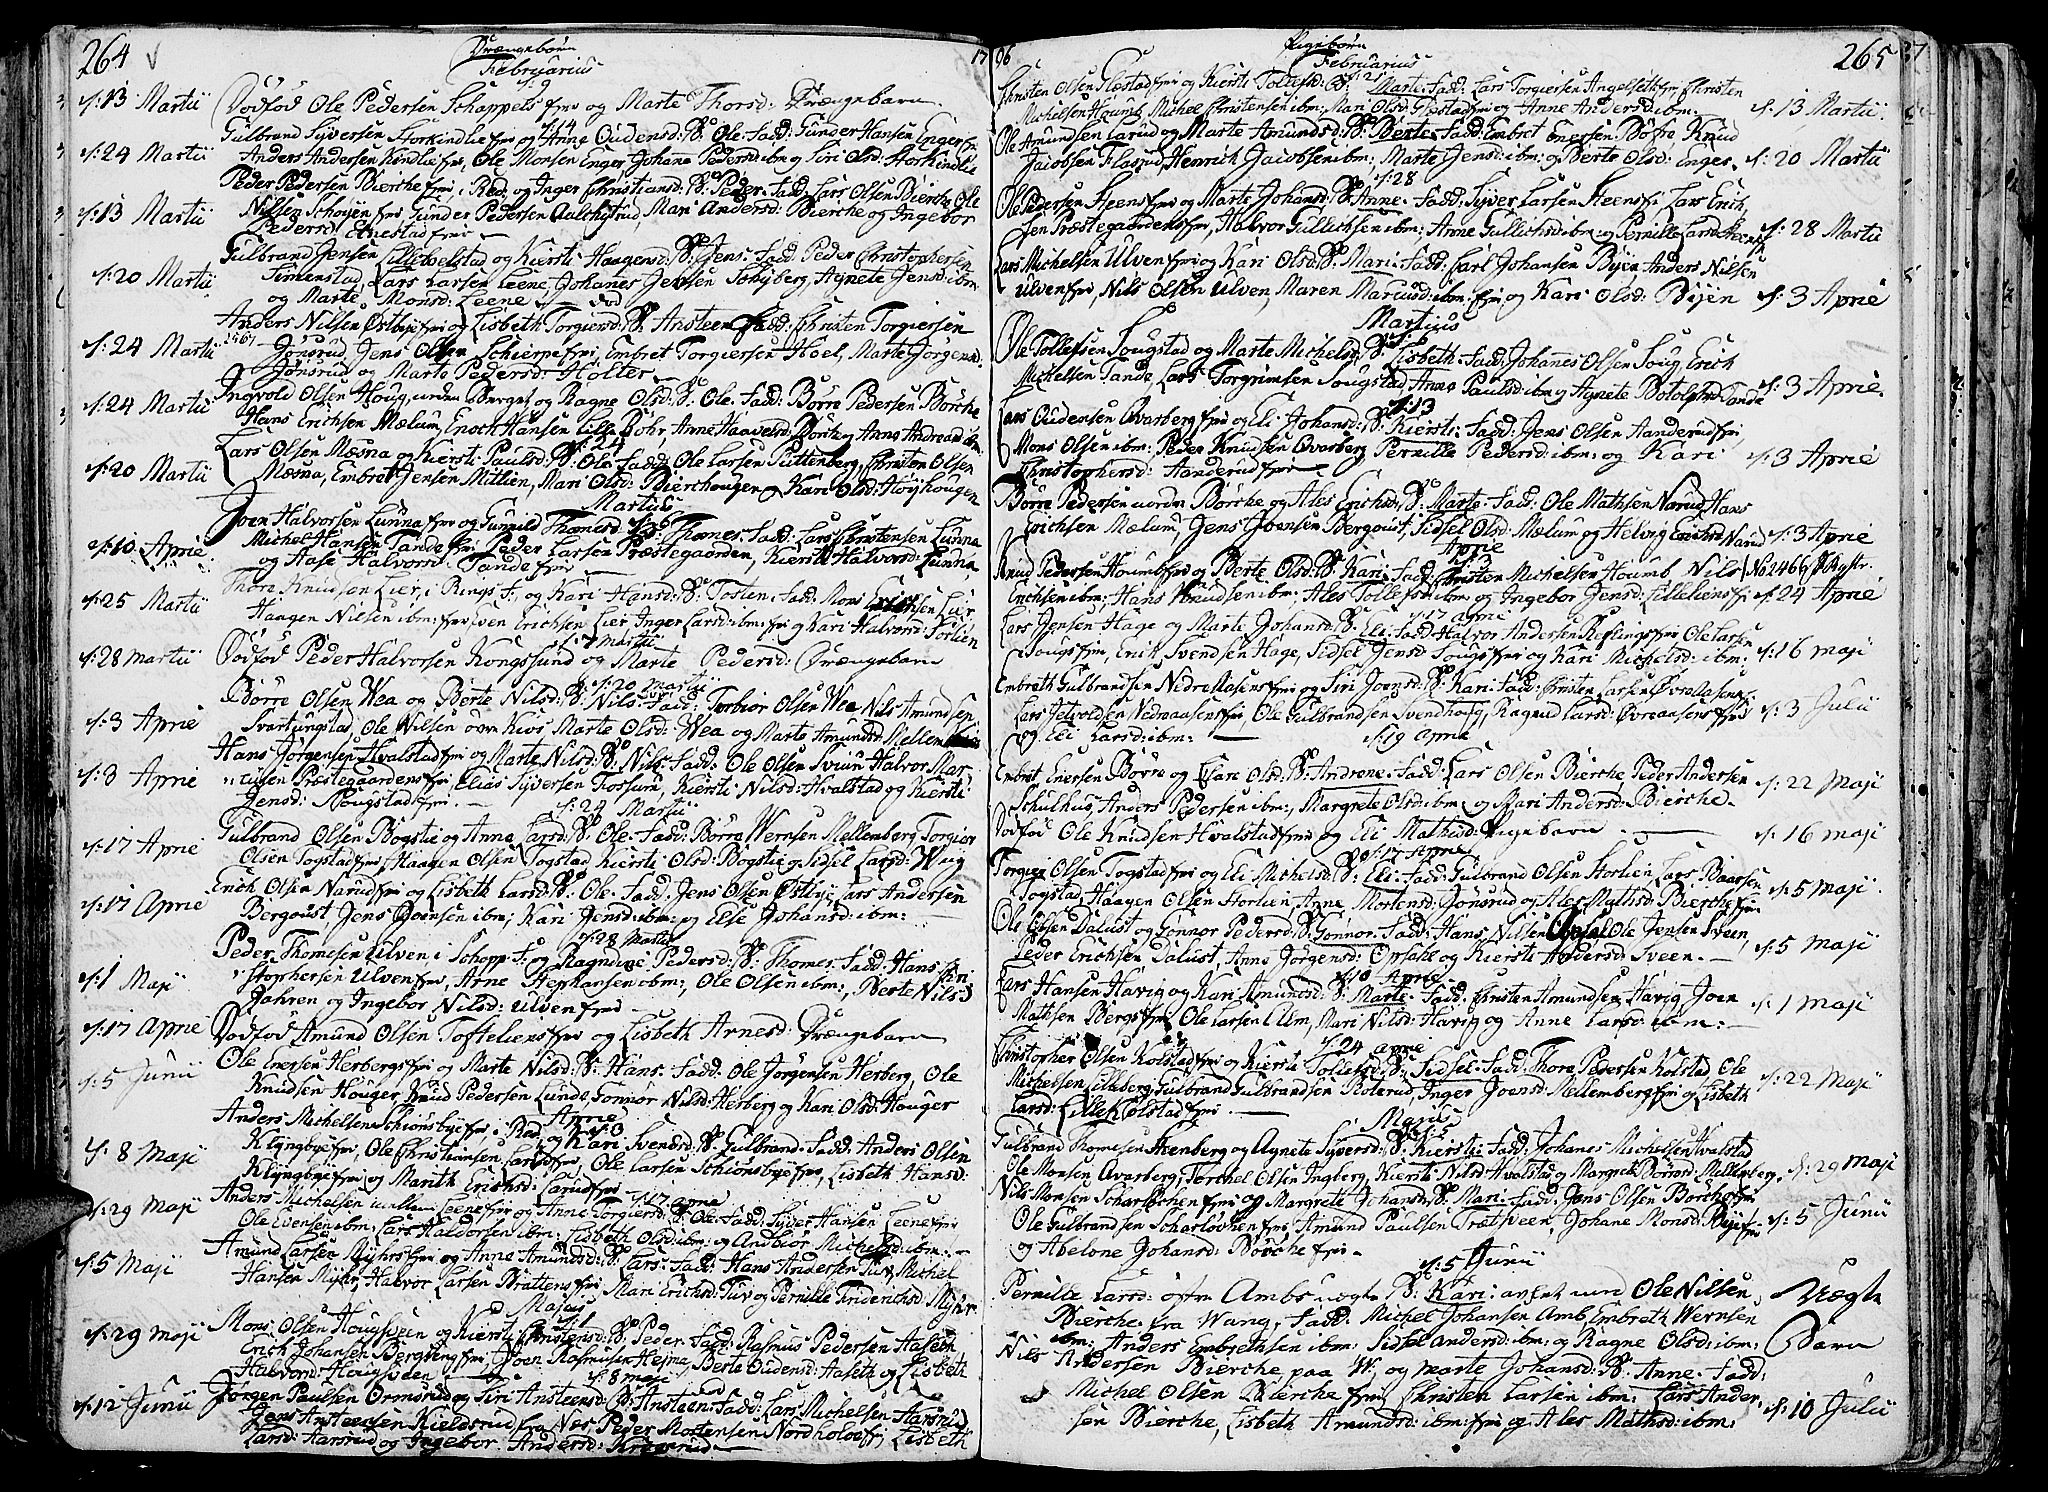 264
Drængebørn
17
Februarius
d: 9
d: 13 Martii
Dødfød Ole Pedersen Schappels fri og Marte Thorsd: Drængebarn.
Gulbrand Syversen Storkindlie fri og Anne Oudensd: B: Ole. Fadd: Gunder Hansen Enger fri
d: 24 Martii
Anders Andersen Kindlie fri, Ole Monsen Enger Johana Pedersd ibm og Siri Olsd: Storkindlie
Peder Pedersen Bierche fri, i Red, og Inger Christiansd: B: Peder. Fadd: Lars Olsen Bierche Ole
d: 13 Martii
Nilsen Schøyen fri Gunder Pedersen Aalchustrud, Mari Andersd: Bierche og Ingebor
Pedersd Ernestad fri
Gulbrand Jensen Lilletvelstad og Kiersti Haagensd: B: Jens. Fadd: Peder Christophersen
d: 20 Martii
Timenstad, Lars Larsen Leene, Johanes Jensen Torsyberg, Agnete Jensd: ibm
og Marte Monsd: Leene
Anders Nilsen Østbye fri og Lisbeth Torgiersd: B: Ansteen. Fadd: Christen Torgiersen
d: 24 Martii
Jønsrud, Jens Olsen Schierpe fri, Embret Torgiersen Hoel, Marte Jørgensd:
Jønsrud og Marte Pedersd: Holter
Ingvold Olsen Houg, under Berget og Ragne Olsd: B: Ole. Fadd: Børre Pedersen Børche
d: 24 Martii
Hans Erichsen Mælum, Enoch Hansen Lille Bøhr, Anne Haavelsd: Boritz og Anne Andreasd ibm
d: 24
Lars Olsen Mæsna og Kiersti Paulsd: B: Ole. Fadd: Ole Larsen Puttenberg, Christen Olsen
d: 20 Martii
Mæsna, Embret Jensen Mitlien, Mari Olsd: Bierchougen og Kari Olsd: Høyhougen
Martius
Joen Halvorsen Lunna fri og Gunnild Thomesd: B: Thomes. Fadd: Lars Christensen Lunna
d: 10 Aprie
Michel Hansen Tande fri Peder Larsen Præstegaarden, Kiersti Halvorsd: Lunna
og Aase Halvorsd: Tande fri
Thore Knudsen Lier, i Rings F: og Kari Hansd: B: Tosten. Fadd: Mons Erichsen Lier,
d: 25 Martii
Haagen Nilsen ibm: fri Even Erichsen Lier Inger Larsd: ibm: fri og Kari Halvorsd: Torlien
d: 7 martii
d: 28 martii
Dødfød Peder Halvorsen Kongssund og Marte Pedersd: Drængebarn
d: 20 martii
Børre Olsen Wea og Berte Nilsd: B: Nils. Fadd: Torbiør Olsen Wea Nils Amundsen
d: 3 Aprie
Svartungstad, Ole Nilsen over Kiøs Marte Olsd: Wea og Marte Amundsd Mellem
Hans Jørgensen Hvalstad fri og Marte Nilsd: B: Nils. Fadd: Ole Olsen Sviin Halvor Mar-
d: 3 Aprie
tinsen Præstegaardens fri, Elias Syversen Fossum, Kiersti Nilsd: Hvalstad og Kiersti
Jensd: Sougstad fri.
d: 24 Martii
Gulbrand Olsen Bøgstie og Anne Larsd: B: Ole. Fadd: Børre Wernsen Mellemberg Torgier
d: 17 Aprie
Olsen Togstad fri, Haagen Olsen Togstad Kiersti Olsd: Bøgstie og Sidsel Larsd: Weig
Erich Olsen Narud fri og Lisbeth Larsd: B: Ole. Fadd: Jens Olsen Østbye, Lars Andersen
d: 17 Aprie
Bergoust, Jens Joensen ibm; Kari Jensd: ibm: og Else Johansd: ibm:
d: 28 Martii
Peder Thomesen Ulven, i Schopp F: og Ragndie Pedersd: B: Thomes. Fadd: Hans Chri
d: 1 Maji
stophersen Ulven fri, Arne Stephansen ibm:, Ole Olsen ibm:, Berte Nilsd
Jahren og Ingebor Nilsd: Ulven fri
d: 17 Aprie
Dødfød Amund Olsen Tofteliens fri og Lisbeth Arnesd: Drængebarn
Ole Enersen Herbergs fri og Marte Nilsd: B: Hans. Fadd: Ole Jørgensen Herberg, Ole
d: 5 Junii
Knudsen Houger, Knud Pedersen Lunde, Gonnor Nilsd: Herberg og Kari Olsd: Houger
Aprie
Anders Michelsen Schiønsbye fri, i Red, og Kari Svendsd: B: Gulbrand. Fadd: Anders Olsen
d: 8 Maji
Klyngbye fri, Ole Christiansen Larud fri, Ole Larsen Schiønsbye fri, Lisbeth Hansd:
Klyngbye fri og Marith Erichsd: Larud fri
d: 17 aprie
Anders Michelsen mellem Leene fri og Anne Torgiersd: B: Ole. Fadd: Syver Hansen Leene fri,
d: 29 Maji
Ole Evensen ibm: Lars Haldorsen ibm: Lisbeth Olsd: ibm: og Andbiør Michelsd: ibm:
Amund Larsen Myhrs fri og Anne Amundsd: B: Lars. Fadd: Hans Andersen Tuv, Michel
d: 5 Maji
Hansen Myhr, Halvor Larsen Brattens fri, Mari Erichsd: Tuv og Pernille Friderichsd: Myhr.
Majus
d: 1
Mons Olsen Hougsveen og Kiersti Christensd: B: Peder. Fadd: Rasmus Pedersen Haseth
d: 29 Maji
Erich Johansen Bergseng fri, Joen Rasmusen Hejna, Berte Oudensd: Haseth og Lisbeth
Halvorsd: Hougsveen
d: 8 maji
Jørgen Paulsen Ormsrud og Siri Ansteensd: B: Ansteen. Fadd: Lars Michelsen Aarsrud
d: 12 Junii
Jens Ansteensen Kieldsrud fra Næs Peder Mortensen Nordholoe fri, Lisbeth
Larsd: Aarsrud og Ingebor Andersd: Kragerud
96
Pigebørn
Februarius
d: 21
265
Christen Olsen Glæstad fri og Kiersti Tollefsd: B: Marte. Fadd: Lars Torgiersen Angelseth fri Christen
Michelsen Houmb, Michel Christensen ibm: Mari Olsd: Glæstad fri og Anne Andersd: ibm:
d: 13 Martii.
Ole Amundsen Larud og Marte Amundsd: B: Berte. Fadd: Embret Enersen Børre, Knud
Jacobsen Flasrud, Henrich Jacobsen ibm: Marte Jensd: ibm: og Berte Olsd: Enger.
d: 20 Martii
d: 28
Ole Pedersen Steens fri og Marte Johansd: B: Anne. Fadd: Syver Larsen Steens fri, Lars Erich-
sen Præstegaardens fri, Halvor Gullichsen ibm: Anne Gullichsd ibm: og Pernille Larsd Steens fri
d: 28 Martii
Lars Michelsen Ulven fri og Kari Olsd: B: Mari. Fadd: Carl Johansen Byen Anders Nilsen
Ulven fri, Nils Olsen Ulven, Maren Marcusd: ibm: fri og Kari Olsd: Byen
d: 3 Aprie
Martius
Ole Tollefsen Sougstad og Marte Michelsd: B: Lisbeth. Fadd: Johannes Olsen Soug, Erich
Michelsen Tande Lars Torgrimsen Sougstad Anne Paulsd: ibm og Agnete Botolphsd Tande
d: 3 Aprie.
d: 13
Lars Oudensen Qvarberg fri og Eli Johansd: B: Kiersti. Fadd: Jens Olsen Aanderud fri,
Mons Olsen ibm: Peder Knudsen Qvarberg Pernille Pedersd: ibm: og Kari
Christophersd: Aanderud fri
d: 3 Aprie
Børre Pedersen nordre Børche og Ales Erichsd: B: Marte. Fadd: Ole Mathsen Narud Hans
Erichsen Mælum, Jens Joensen Bergoust, Sidsel Olsd: Mælum og Helvig Erichsd Narud
d: 3 Aprie
Aprie
d: 3
Knud Pedersen Houmb fri og Berte Olsd: B: Kari. Fadd: Christen Michelsen Houmb Nils
No 2466
Erichsen ibm:, Hans Knudsen ibm:, Ales Tollefsd ibm: og Ingebor Jensd: Lilleliens fri
d: 24 Aprie
d: 17 aprie
Lars Jensen Hage og Marte Johansd: B: Eli. Fadd: Halvor Andersen Reflings fri Ole Larsen
Sougs fri, Erik Svendsen Hage, Sidsel Jensd Sougs fri og Kari Michelsd: ibm:
d: 16 maji
Embreth Gulbrandsen Nedre Aasens fri og Siri Joensd: B: Kari. Fadd: Christen Larsen Øvre Aasens fri
Lars Jetvoldsen Nedreaasens fri, Ole Gulbrandsen Svendhoug, Ragnild Larsd: Øvreaasens fri
og Eli Larsd: ibm:
d: 3 Julii
d: 19 aprie
Embret Enersen Børre og Kari Olsd: B: Androne. Fadd: Lars Olsen Bierche, Peder Andersen
Schulhus, Anders Pedersen ibm:, Margrete Olsd: ibm og Mari Andersd: Bierche.
d: 22 Maji
Dødfød Ole Knudsen Hvalstad fri og Eli Mathisd: Pigebarn
d: 16 maji
d: 17 Aprie
Torgier Olsen Togstad fri og Eli Michelsd: B: Eli. Fadd: Gulbrand Olsen Storlien, Lars Baarsen
Togstad, Haagen Olsen Storlien, Anne Mortensd: Jønsrud og Ales Mathsd: Bierche fri
d: 5 maji.
Ole Olsen Dalust og Gønnor Pedersd: B: Gønnor. Fadd: Hans Nilsen Opsal Ole Jensen Sveen,
Peder Erichsen Dalust, Anne Jørgensd: Opsahl og Kiersti Andersd: Sveen.
d: 5 maji
d: 10 Aprie
Lars Hansen Havig og Kari Amundsd: B: Marte. Fadd: Christen Amundsen Havig Joen
Mathsen Bergs fri, Ole Larsen Ulm, Mari Nilsd: Havig og Anne Larsd: ibm:
d: 1 maji
d: 24 aprie
Christopher Olsen Kolstad fri og Kiersti Tollefsd: B: Sidsel. Fadd: Thore Pedersen Kolstad Ole
Michelsen Lilleberg Gulbrand Gulbrandsen Roterud, Inger Joensd: Mellemberg fri og Lisbeth
Larsd: Lille Kolstad fri
d: 22 Maji
Majus
d: 5
Gulbrand Thomesen Steenberg og Agnete Syversd: B: Kiersti: Fadd: Johanes Michelsen Hvalstad
Ole Monsen Qvarberg, Torchel Olsen Ingberg, Kiersti Nilsd Hvalstad og Margrete Børresd: Mellemberg,
d: 29 Maji
Nils Monsen Scharløchen fri og Margrete Johansd: B: Mari. Fadd: Jens Olsen Børche fri
Ole Gulbrandsen Scharløchen fri Amund Paulsen Trætsveen, Johane Monsd: Bye fri
og Abelone Johansd: Børche fri
d: 5 Junii
d: 5 Junii
Pernille Larsd: øfre Ambs uægte B: Kari: avlet med Ole Nilsen,
Uægte
Bierche fra Wang, Fadd: Michel Johansen Amb, Embreth Wernsen
ibm: Anders Embrethsen ibm: Sidsel Andersd: ibm: og Ragne Olsd: ibm:
Barn
Nils Andersen Bierche, paa W. og marte Johansd: B: Anne. Fadd:
Michel Olsen Bierche fri, Christen Larsen ibm: Lars Ander-
sen Bierche, Lisbeth Amundsd: ibm: fri og Ales Mathsd: ibm:
d: 10 Julii